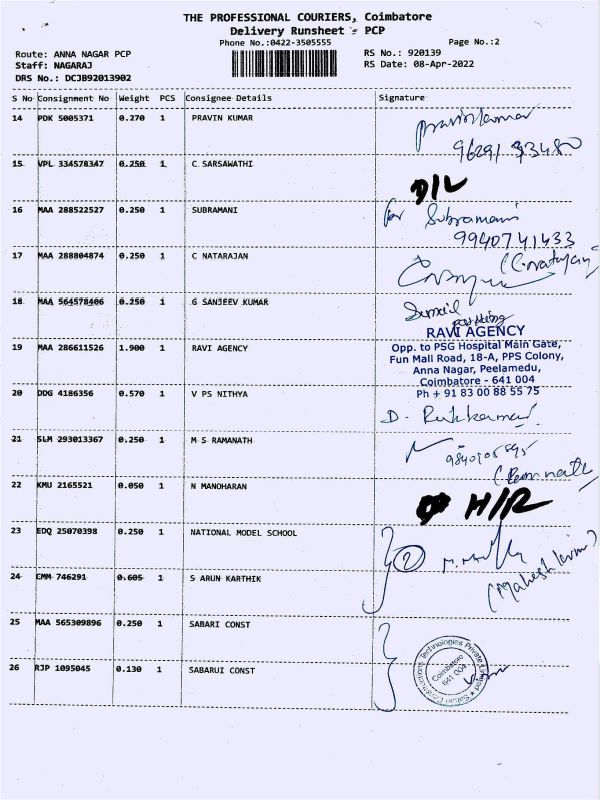 THE PROFESSIONAL COURIERS, Coimbatore
Delivery Runsheet - PCP
Phone No.:0422-3505555
Page No.:2
Route: ANNA NAGAR PCP
RS No.: 920139
Staff: NAGARAJ
RS Date: 08-Apr-2022
DRS No.: DCJB92013902
S No Consignment No Weight PCS Consignee Details Signature
14 PDK 5005371 0.270 1 PRAVIN KUMAR
pravin kumar
15 VPL 334578347 0.250 1 C SARSAWATHI
D/L
16 MAA 288522527 0.250 1 SUBRAMANI
for Subramani
9940741433
17 MAA 288804874 0.250 1 C NATARAJAN
(C. natarajan)
18 MAA 564578406 0.250 1 G SANJEEV KUMAR
19 MAA 286611526 1.900 1 RAVI AGENCY
RAVI AGENCY
Opp. to PSG Hospital Main Gate,
Fun Mall Road, 18-A, PPS Colony,
Anna Nagar, Peelamedu,
Coimbatore - 641 004
Ph + 91 83 00 88 55 75
20 DDG 4186356 0.570 1 V PS NITHYA
D.
21 SLM 293013367 0.250 1 M S RAMANATH
(Ramnath)
22 KMU 2165521 0.050 1 N MANOHARAN
H/R
23 EDQ 25070398 0.250 1 NATIONAL MODEL SCHOOL
2
24 CMM 746291 0.605 1 S ARUN KARTHIK
25 MAA 565309896 0.250 1 SABARI CONST
26 RJP 1095045 0.130 1 SABARUI CONST
Technologies Private Limited
Coimbatore
641 004